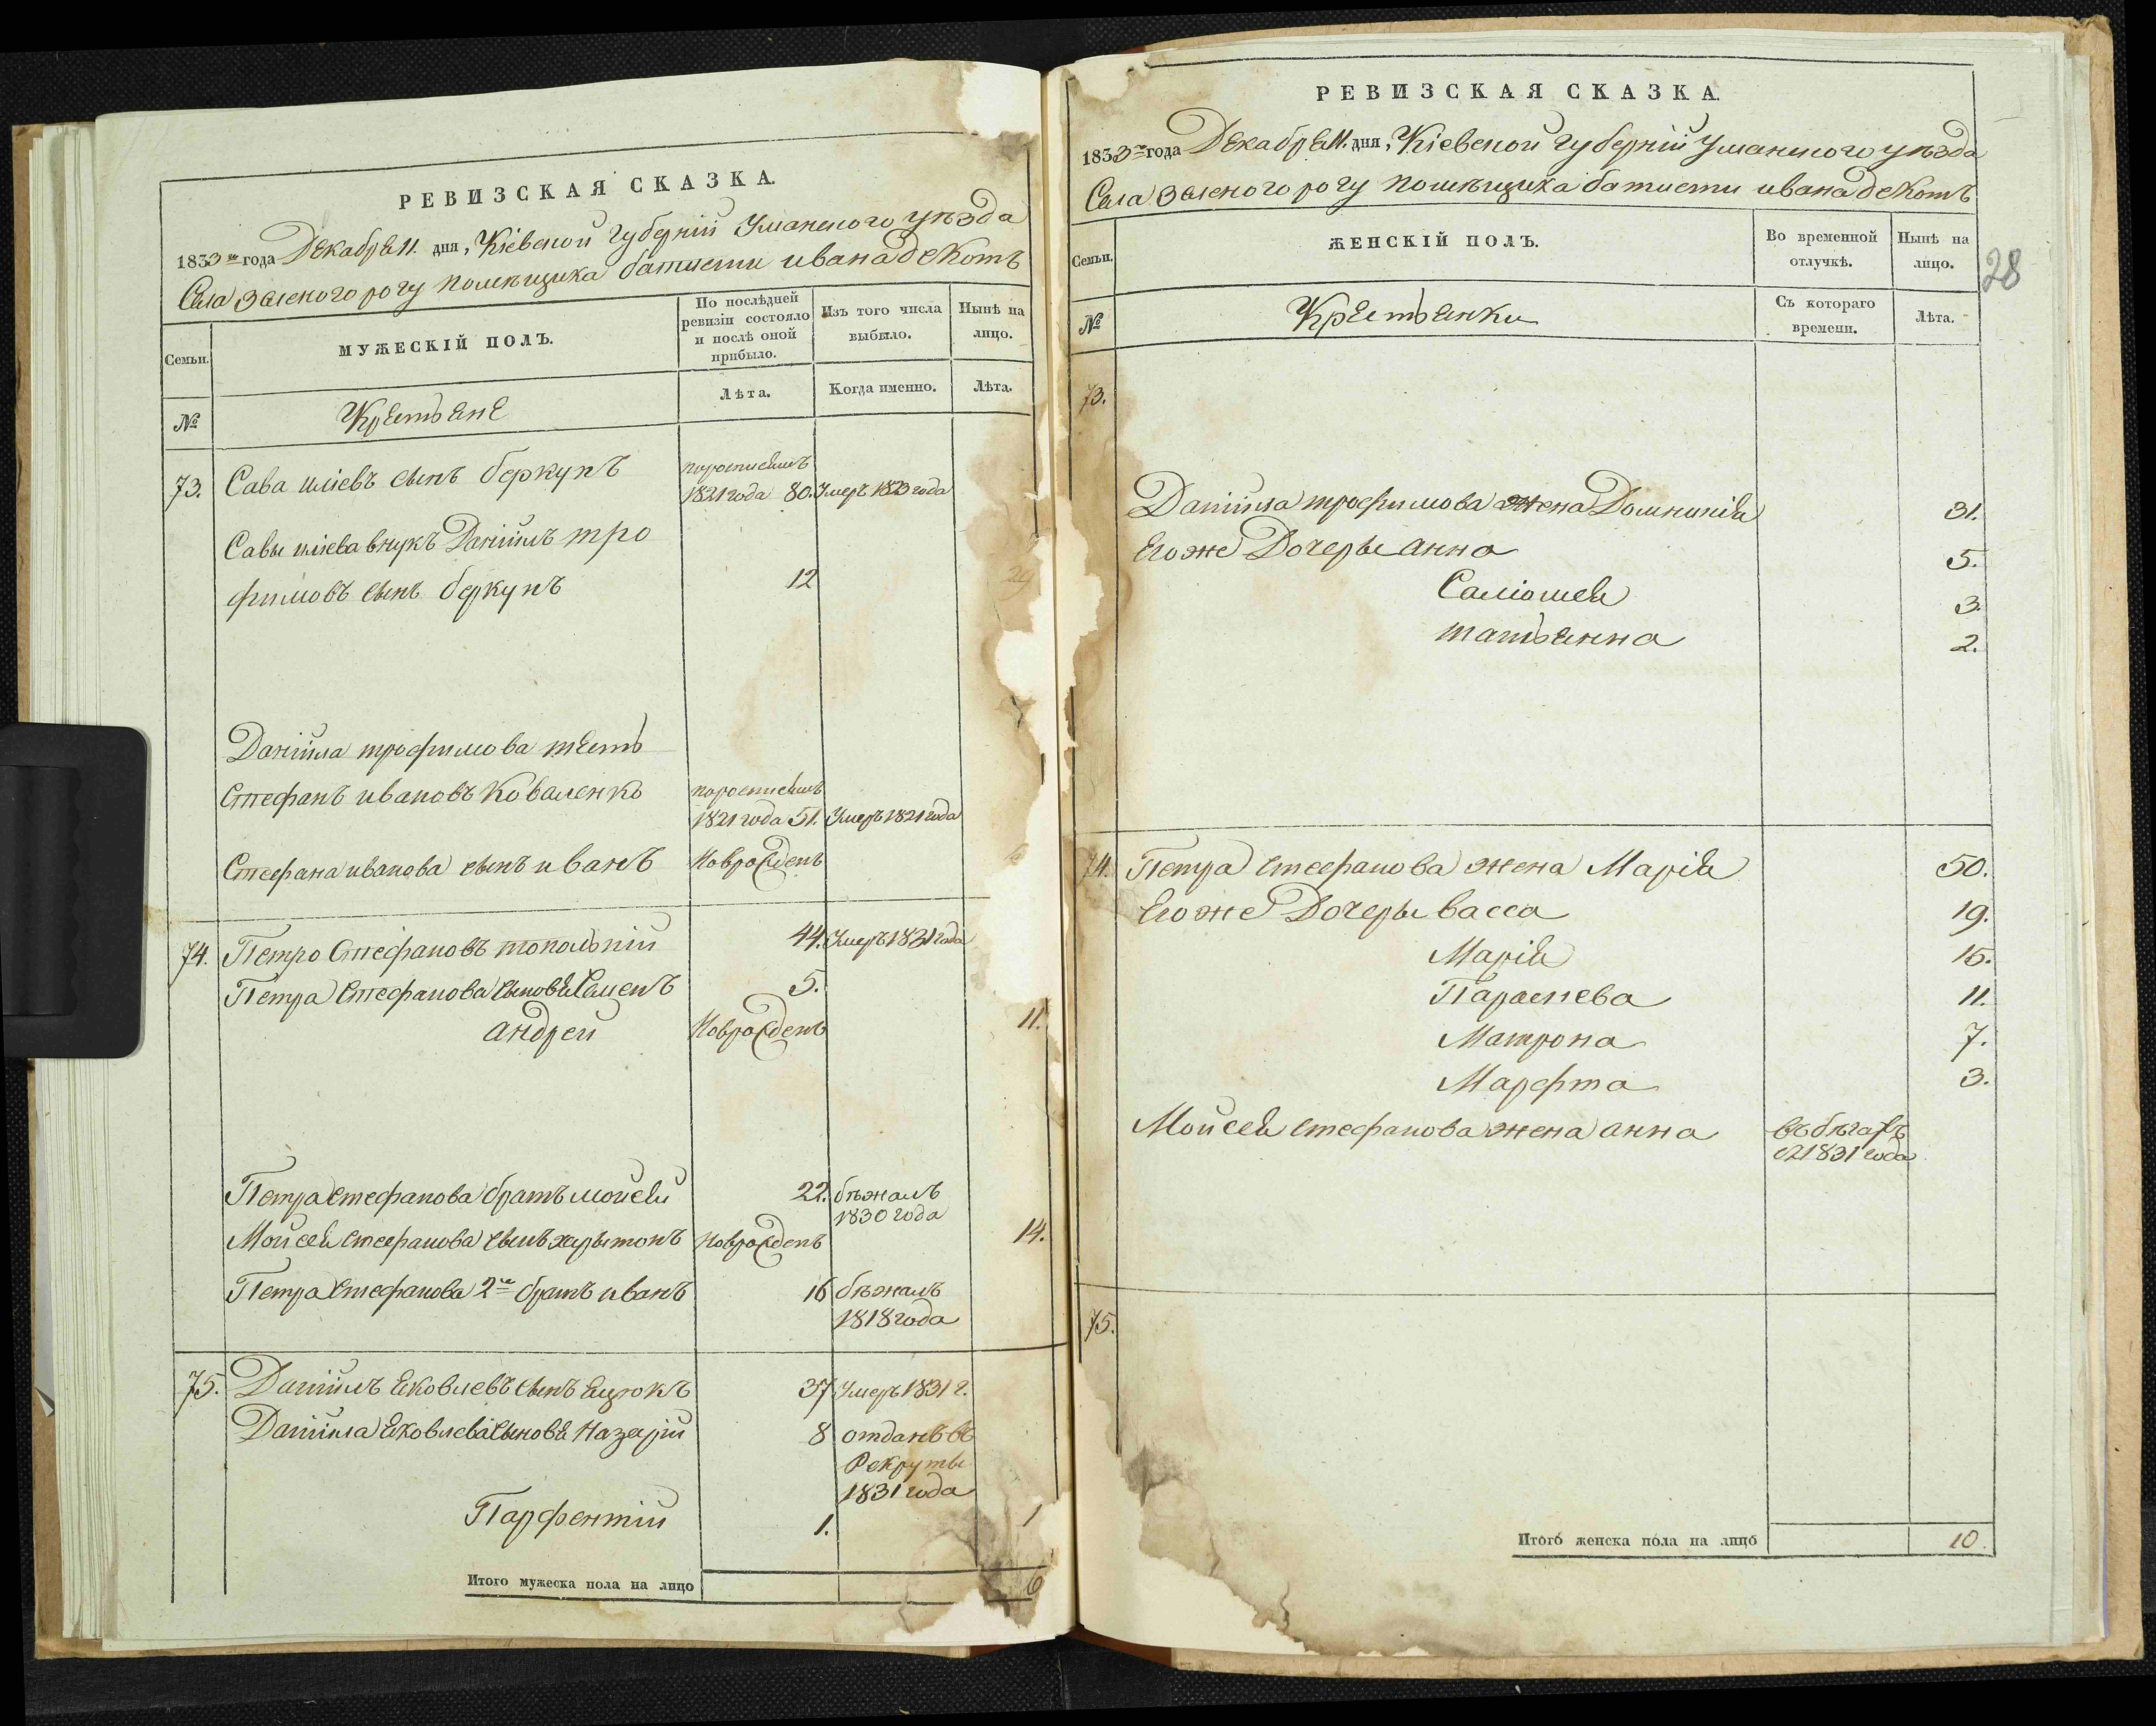 РЕВИЗСКАЯ СКАЗКА.
1833го года Декабря 11. дня, Кіевской губерніи Уманского уѣзда
Села Зеленого рогу помѣщика батисти ивана де Котъ
Семьи.
МУЖЕСКІЙ ПОЛЪ.
По послѣдней ревизіи состояло и послѣ оной прибыло.
Изъ того числа выбыло.
Нынѣ на лицо.
№
Крестьяне
Лѣта.
Когда именно.
Лѣта.
73. Сава иліевъ сынъ беркунъ
1821 года 80. Умеръ 1823 года
Савы иліева внукъ Даніилъ тро
фимовъ сынъ беркунъ 12 29
Даніила трофимова тесть
Стефанъ ивановъ Коваленко
1821 года 51. Умеръ 1821 года
Стефана иванова сынъ иванъ Новрожденъ
74. Петро Стефановъ 44. Умеръ 1831 года
Петра Стефанова сыновья Семенъ 5.
андрей Новрожденъ 11.
Петра Стефанова братъ мойсей 22. бѣжалъ
1830 года
Мойсея стефанова сынъ харытонъ Новрожденъ 14.
Петра Стефанова 2й братъ иванъ 16 бѣжалъ
1818 года
75. Даніилъ яковлевъ сынъ 37 Умеръ 1831 г.
Даніила яковлева сыновья Назарій 8 отданъ въ
Рекруты
1831 года
Парфентій 1. 1
Итого мужеска пола на лицо 6
РЕВИЗСКАЯ СКАЗКА.
1833го года Декабря 11. дня, Кіевской губерніи Уманского уѣзда
Села Зеленого рогу помѣщика батисти ивана де Котъ
28
Семьи.
ЖЕНСКІЙ ПОЛЪ.
Во временной отлучкѣ.
Нынѣ на лицо.
№
Крестьянки
Съ котораго времени.
Лѣта.
73.
Даніила трофимова жена Домникія 31.
Его же Дочеры анна 5.
Саліомея 3.
татьянна 2.
74. Петра стефанова жена Марія 50.
Его же Дочеры васса 19.
Марія 15.
Параскева 11.
Матрона 7.
Марфта 3.
Мойсея стефанова жена анна въ бѣгахъ
съ 1831 года
75.
Итого женска пола на лицо 10.